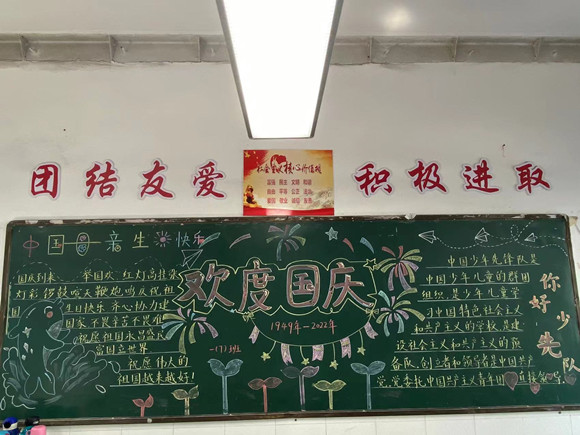 团结友爱
社会主义核心价值观
富强 民主 文明 和谐
自由 平等 公正 法治
爱国 敬业 诚信 友善
积极进取
中国 亲生 快乐
国庆到来 举国欢 红灯高挂
灯彩 锣鼓喧天鞭炮鸣庆祝祖
国 生日快乐 齐心协力建
国家 不畏辛苦不畏
祝愿祖国永昌盛
富国立世界
祝愿伟大的
祖国越来越好!
欢度国庆
1949年-2022年
-1713班
中国少年先锋队是
中国少年儿童的群团
组织,是少年儿童学
习中国特色社会主义
和共产主义的学校,是建
设社会主义和共产主义的预
备队,创立者和领导者是中国共产
党,党委托中国共产主义青年团直接领导
你好少先队